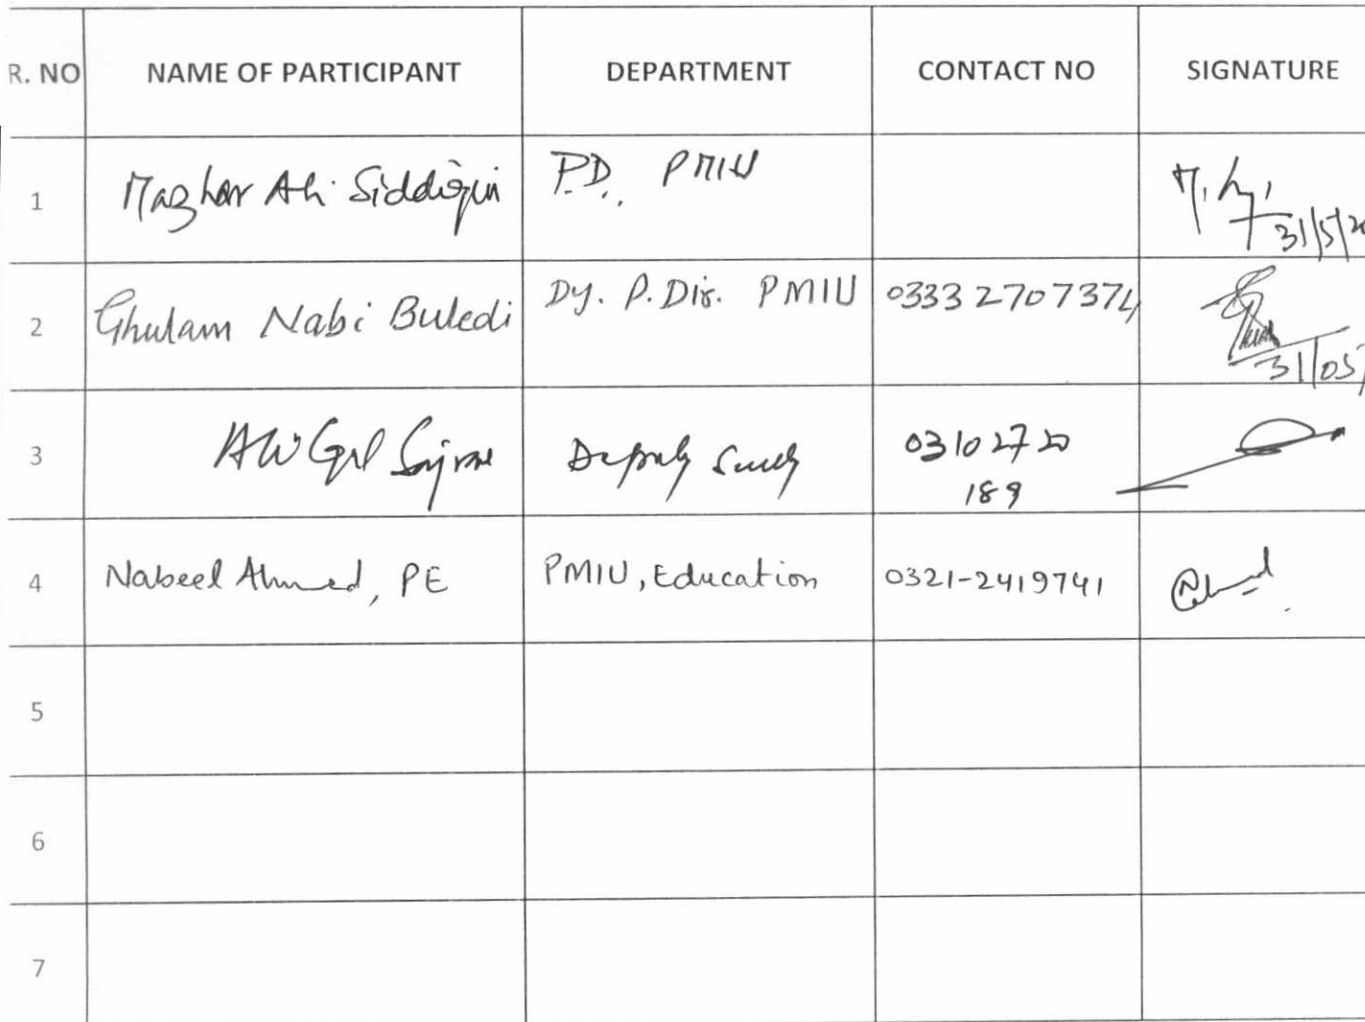 R. NO NAME OF PARTICIPANT DEPARTMENT CONTACT NO SIGNATURE
1 Mazhar Ali Siddiqui P.D. PMIU 31/5/20
2 Ghulam Nabi Buledi Dy. P.Dir. PMIU 0333 2707374 31/05/
3 Ali Gul Deputy 03102720
189
4 Nabeel Ahmed, PE PMIU, Education 0321-2419741
5
6
7